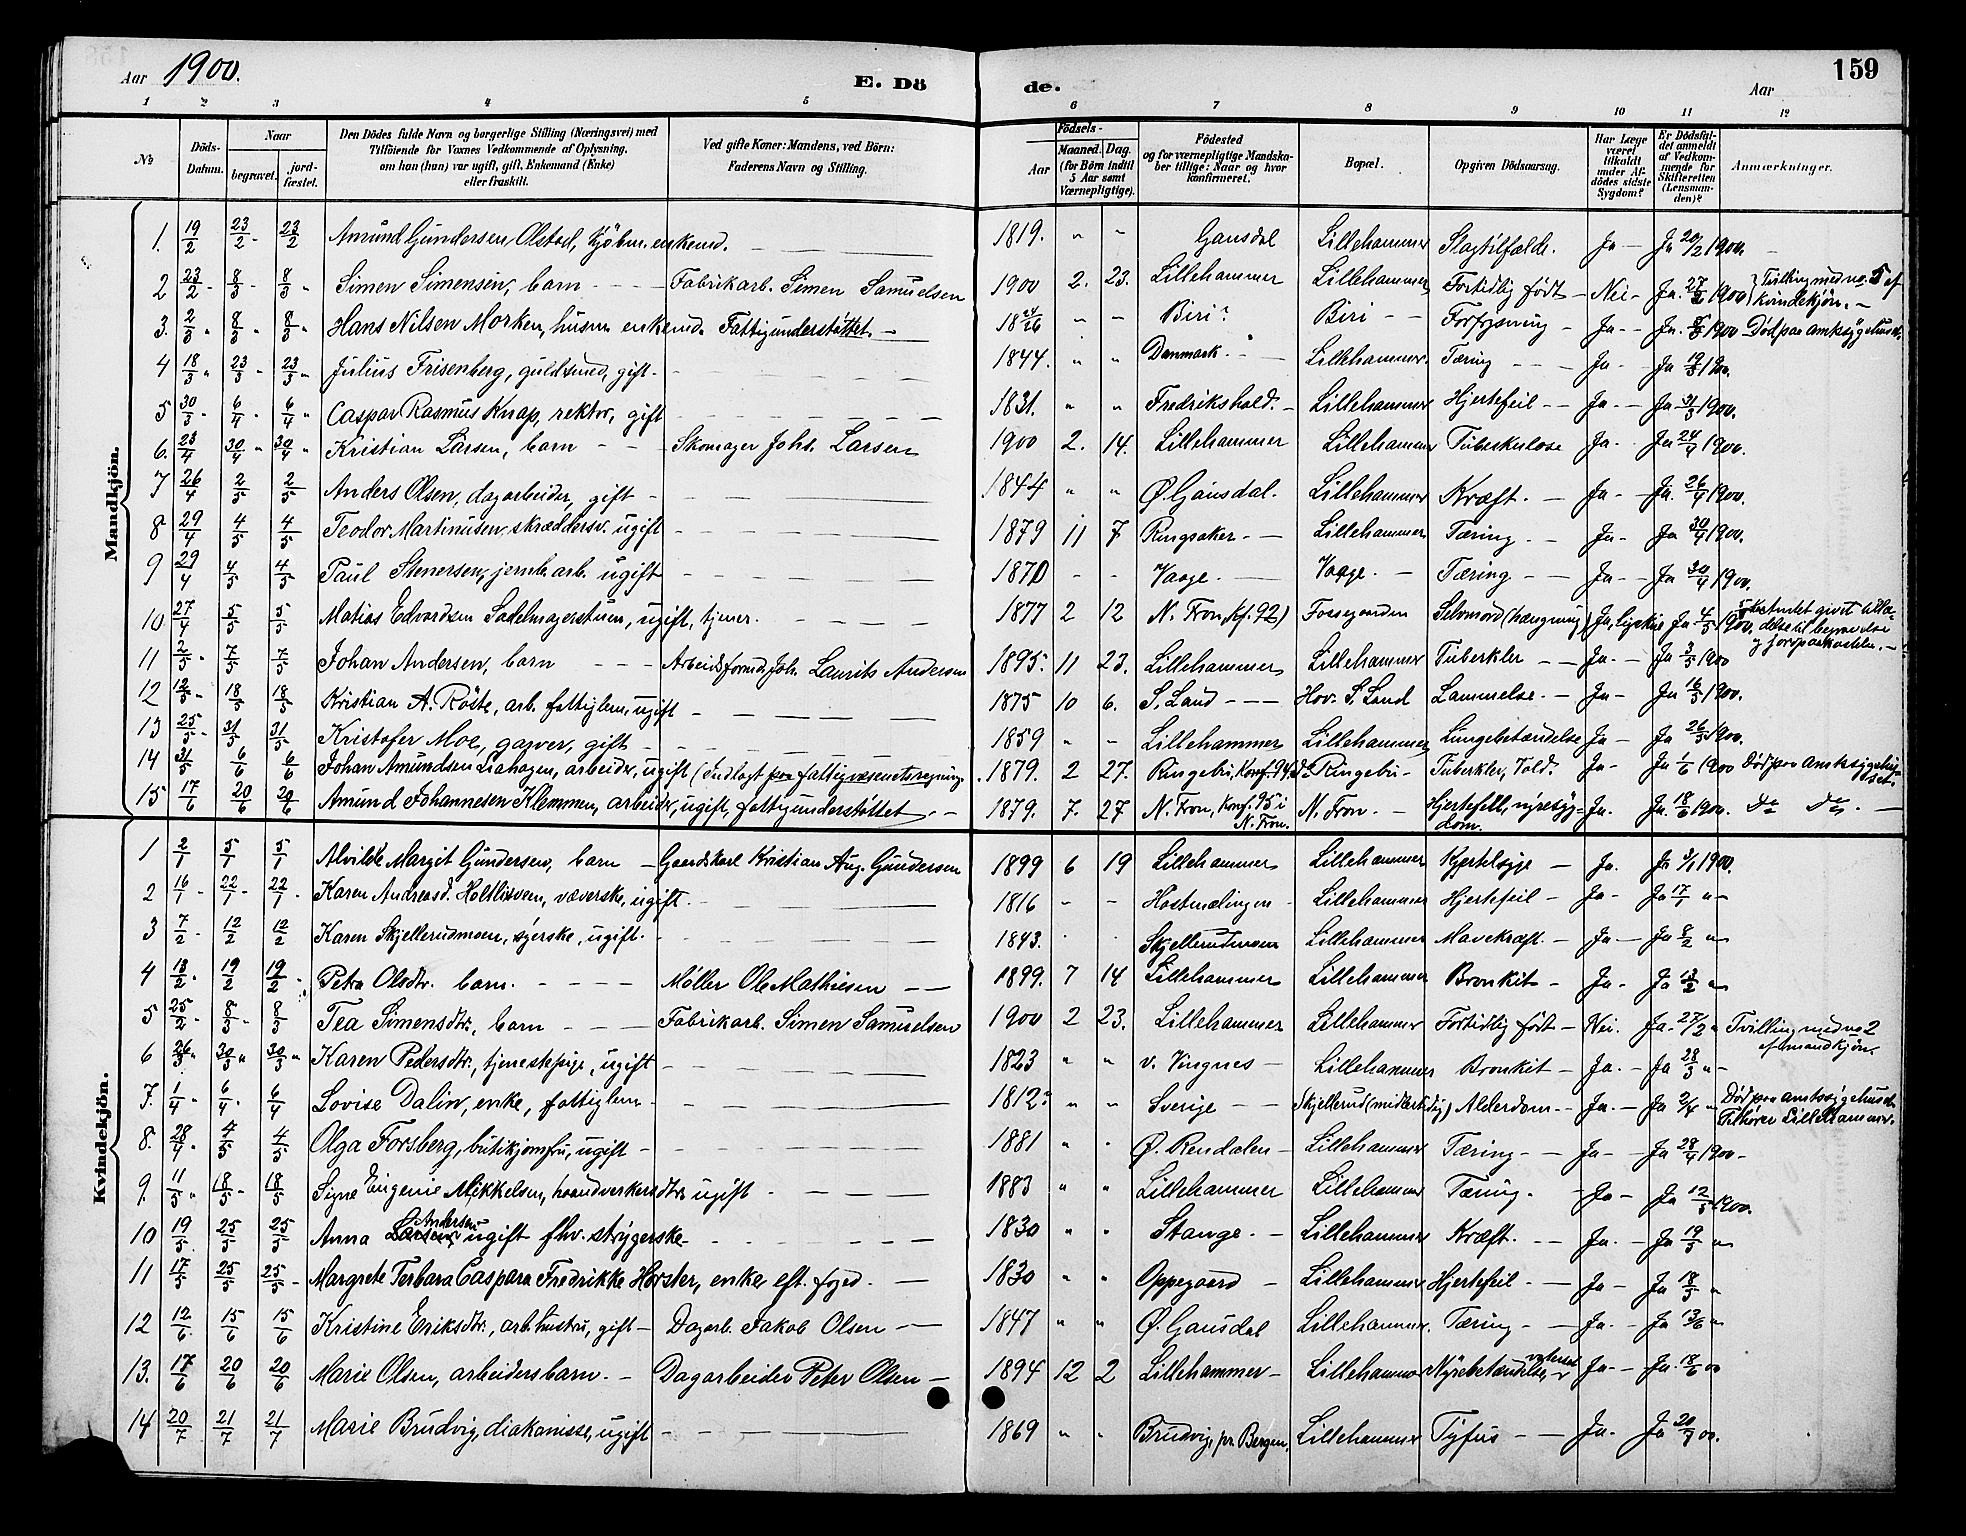 Aar 1900. E. Dö de. Aar 159
1 2 3 4 5 6 7 8 9 10 11 12
№ Döds-Datum. Naar begravet. jord-fæstet. Den Dödes fulde Navn og borgerlige Stilling (Næringsvei) med Tilföiende for Voxnes Vedkommende af Oplysning, om han (hun) var ugift, gift, Enkemand (Enke) eller fraskilt. Ved gifte Koner: Mandens, ved Börn: Faderens Navn og Stilling. Födsels- Aar Maaned. Dag. (for Börn indtil 5 Aar samt Værnepligtige). Födested og for værnepligtige Mandskaber tillige: Naar og hvor konfirmeret. Bopæl. Opgiven Dödsaarsag. Har Læge været tilkaldt under Afdödes sidste Sygdom? Er Dödsfaldet anmeldt af Vedkommende for Skifteretten (Lensmanden)? Anmærkninger.
Mandkjön.
1. 19/2 23/2 - 23/2 Amund Gundersen Olstad, kjöbm. enkemd. 1819. " " Gausdal Lillehammer Slagtilfælde. Ja - Ja 20/2 1900.
2 23/2 - 8/3 - 8/3 " Simen Simensen, barn - - - Fabrikarb. Simen Samuelsen 1900 2. 23. Lillehammer Lillehammer Fortidlig født - Nei - Ja. 27/2 1900 Tvilling med no. 5 af kvindekjön. -
3. 2/3 " 8/3 " 8/3 " Hans Nilsen Morken, husm. enkemd. Fattigunderstøttet - 18 24/26 " " Biri? Biri - - Ja - - Ja. 1900 Død paa amtssygehuset.
4 18/3 " 23/3 " 23/3 " Julius Frisenberg, guldsmed, gift - 1844. " " Danmark. Lillehammer. Tæring - - - Ja - Ja 19/3 1900.
5 30/3 " 6/4 " 6/4 " Caspar Rasmus Knap, rektor, gift 1831. " " Fredrikshald. - Lillehammer Hjertefeil - - Ja - - Ja 31/3 1900.
6. 23/4 30/4 " 30/4 " Kristian Larsen, barn - - Skomager Johs. Larsen 1900 2. 14. Lillehammer Lillehammer Tuberkulose Ja - Ja 24/4 1900.
7 26/4 2/5 2/5 Anders Olsen, dagarbeider, gift - 1844 " " Ø. Gausdal. Lillehammer Kræft. - Ja - Ja. 26/4 1900.
8 29/4 4/5 4/5 Teodor Martinusen, skræddersv. ugift - 1879 11 7 Ringsaker - - Lillehammer Tæring. - Ja - Ja 30/4 1900.
9 29/4 4/5 4/5 Paul Stenersen, jernb. arb. ugift 1870 - - Vaage. Vaage. - Tæring - - Ja - - Ja 30/4 1900.
10 27/4 5/5 5/5 Matias Edvardsen Sadelmagerstuen, ugift, tjener. 1877 2 12 N. Fron, Kf. 92) Fossegaarden Selvmord (hængning) Ja, ligskue Ja 4/5 1900,
11 2/5 " 7/5 7/5 Johan Andersen, barn - - - Arbeidsformd. Joh. Laurits Andersen 1895. 11 23. Lillehammer Lillehammer Tuberkler - - Ja. - Ja 3/5 1900
12 12/5 - 18/5 18/5 Kristian A. Röste, arb. fattiglem, ugift 1875 10 6. S. Land - - - Hov. S. Land Lammelse. - Ja - Ja 16/5 1900.
13 25/5 - 31/5 31/5 Kristofer Moe, garver, gift - 1859 - - Lillehammer Lillehammer Lungebetændelse Ja - Ja 26/5 1900.
14 31/5 6/6 6/6 Johan Amundsen Liahagen, arbeider, ugift (Indlagt paa fattigvæsenets regning. 1879. 2 27. Ringebu, Konf. 94 Ringebu - Tuberkler, Ja - Ja 1/6 1900 Død paa amtssygehuset.
15 17/6 20/6 20/6 Amund Johannesen Klemmen, arbeider, ugift, fattigunderstøttet - 1879. 7. 27 N. Fron, Konf. 95 i N. Fron. N. Fron. - Hjertefeil, nyresygdom. Ja. Ja. 18/6 1900. Do Do. -
Kvindekjön.
1 2/1 5/1 5/1 Alvilde Margit Gundersen, barn - Gaardskarl Kristian Aug. Gundersen 1899 6 19 Lillehammer Lillehammer Kjertelsyge - Ja. Ja 3/1 1900.
2 16/1 - 22/1 - 22/1 Karen Andreasd. væverske, ugift. - 1816 - - Lillehammer Hjertefeil - Ja - Ja 17/1 " -
3 7/2 - 12/2 12/2 Karen Skjellerudmoen, syerske, ugift. - 1843. Skjellerudmoen Lillehammer Mavekræft. - Ja - Ja 8/2 "
4 13/2 " 19/2 19/2 Petra Olsdtr. barn. - - - - Møller Ole Mathiesen - - 1899. 7 14 Lillehammer Lillehammer Bronkit - Ja - Ja 13/2 "
5 25/2 - 8/3 - 8/3 Tea Simensdtr., barn - - - Fabrikarb. Simen Samuelsen 1900 2 23. Lillehammer Lillehammer Fortidlig født - Nei. Ja. 27/2 " Tvilling med no 2 af mandkjön.
6 26/3 " 30/3 " 30/3 " Karen Pedersdtr., tjenestepige, ugift - 1823 " " v. Vingnes - Lillehammer Bronkit - Ja - Ja 28/3 " -
7. 1/4 " 6/4 " 6/4 Lovise Dalin, enke, fattiglem - 1812? " " Sverige - - Skjellerud (midlertidig) Alderdom - Ja. - Ja 2/4 " Død paa amtssygehuset. Tilhører Lillehammer.
8. 28/4 4/5 4/5 Olga Forsberg, butikjomfru, ugift - 1881 " " Ø. Rendalen - Lillehammer Tæring - - Ja - Ja 28/4 1900 -
9. 11/5 " 18/5 - 18/5 Signe Eugenie Mikkelsen, haandverkersdtr. ugift - 1883 " " Lillehammer Lillehammer Tæring. - Ja - Ja 12/5 1900.
10 19/5 25/5 25/5 Anna Larsen Andersen ugift fhv. strygerske - 1830 " " Stange. - Lillehammer Kræft. - - Ja. - Ja 19/5 "
11 17/5 25/5 25/5 - Margrete Terbara Caspara Fredrikke Horster, enke eft. foged. - 1830 " " Oppegaard - Lillehammer Hjertefeil - - Ja - Ja 18/5 "
12 12/6 15/6 15/6 Kristine Eriksdtr., arb. hustru, gift - Dagarb. Jakob Olsen - - 1847 " " Ø. Gausdal Lillehammer. Tæring - - Ja. - Ja 13/6 "
13. 17/6 20/6 20/6 Marie Olsen, arbeidersbarn. - Dagarbeider Peter Olsen - 1894 12 2 Lillehammer - Lillehammer Nyrebetændelse, Ja - Ja. 18/6 00
14 20/7 21/7 21/7 Marie Brudvig, diakonisse, ugift - 1869 " " Brudvig, pr. Bergen. Lillehammer Tyfus - - Ja. Ja 20/7 00.